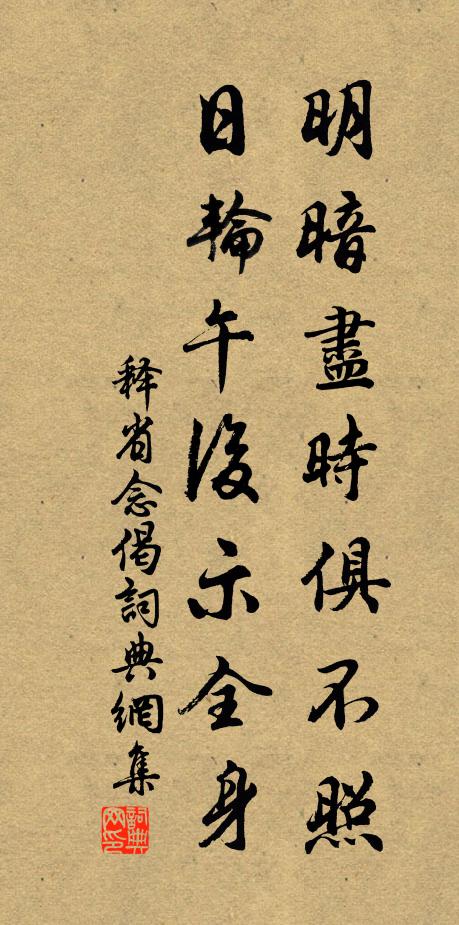 明暗盡時俱不照
日輪午後示全身
释省念偈詞典網集
詞典网印